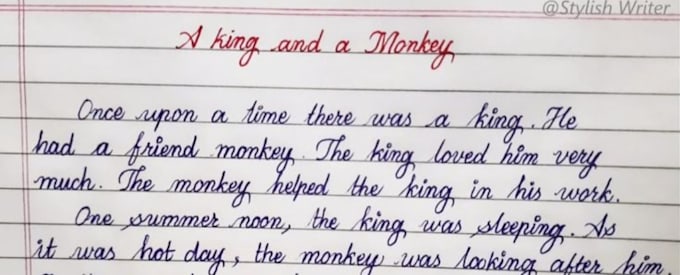 @Stylish Writer
A king and a Monkey
Once upon a time there was a king. He
had a friend monkey. The king loved him very
much. The monkey helped the king in his work.
One summer noon, the king was sleeping. As
it was hot day, the monkey was looking after him.